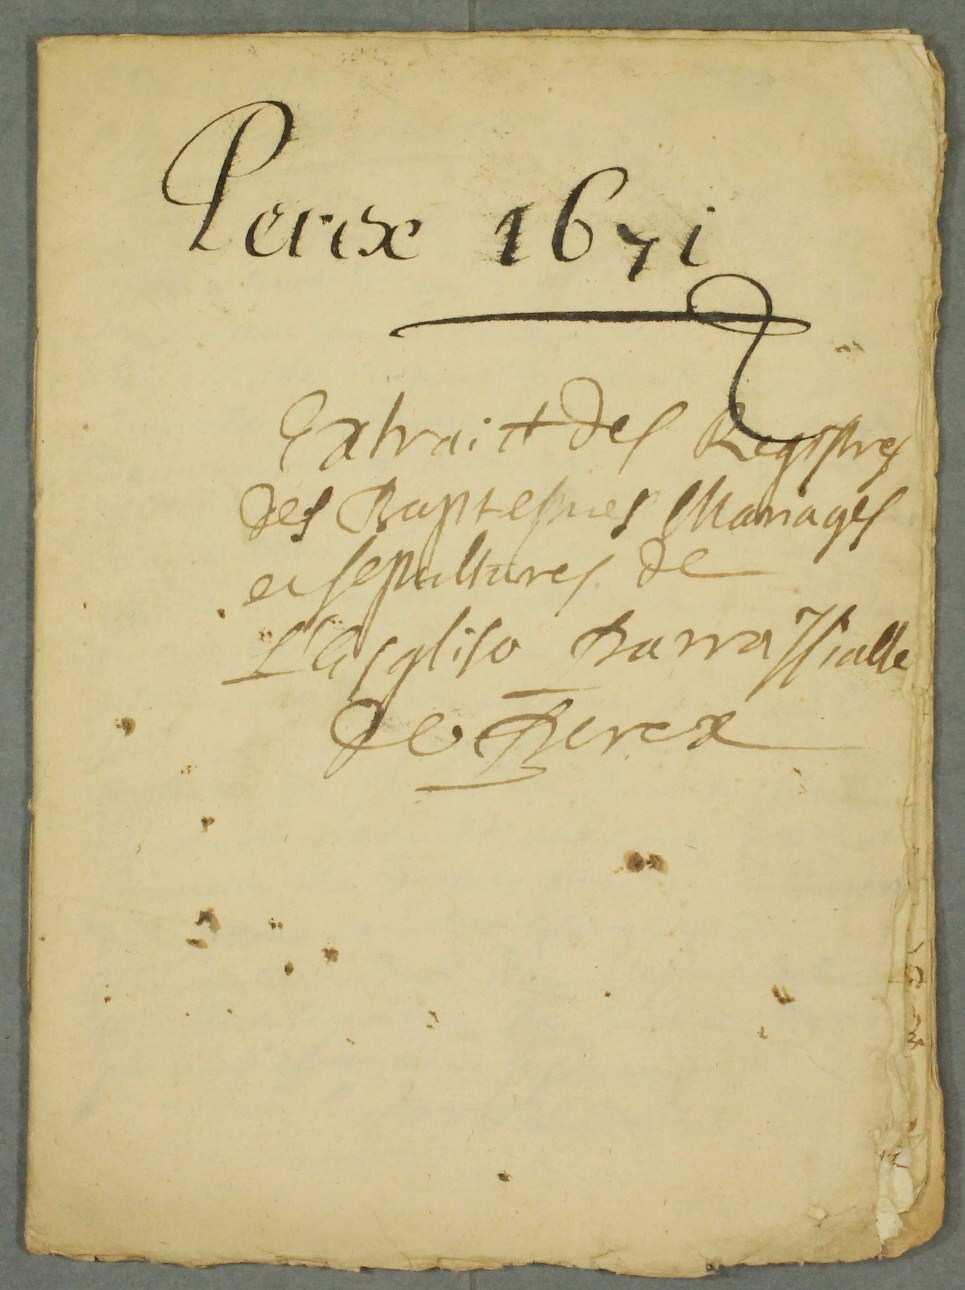 Perex 1671
Extraict des Registres
des Baptesmes Mariages
et sepultures de
L'Esglise Parroissialle
de Perex